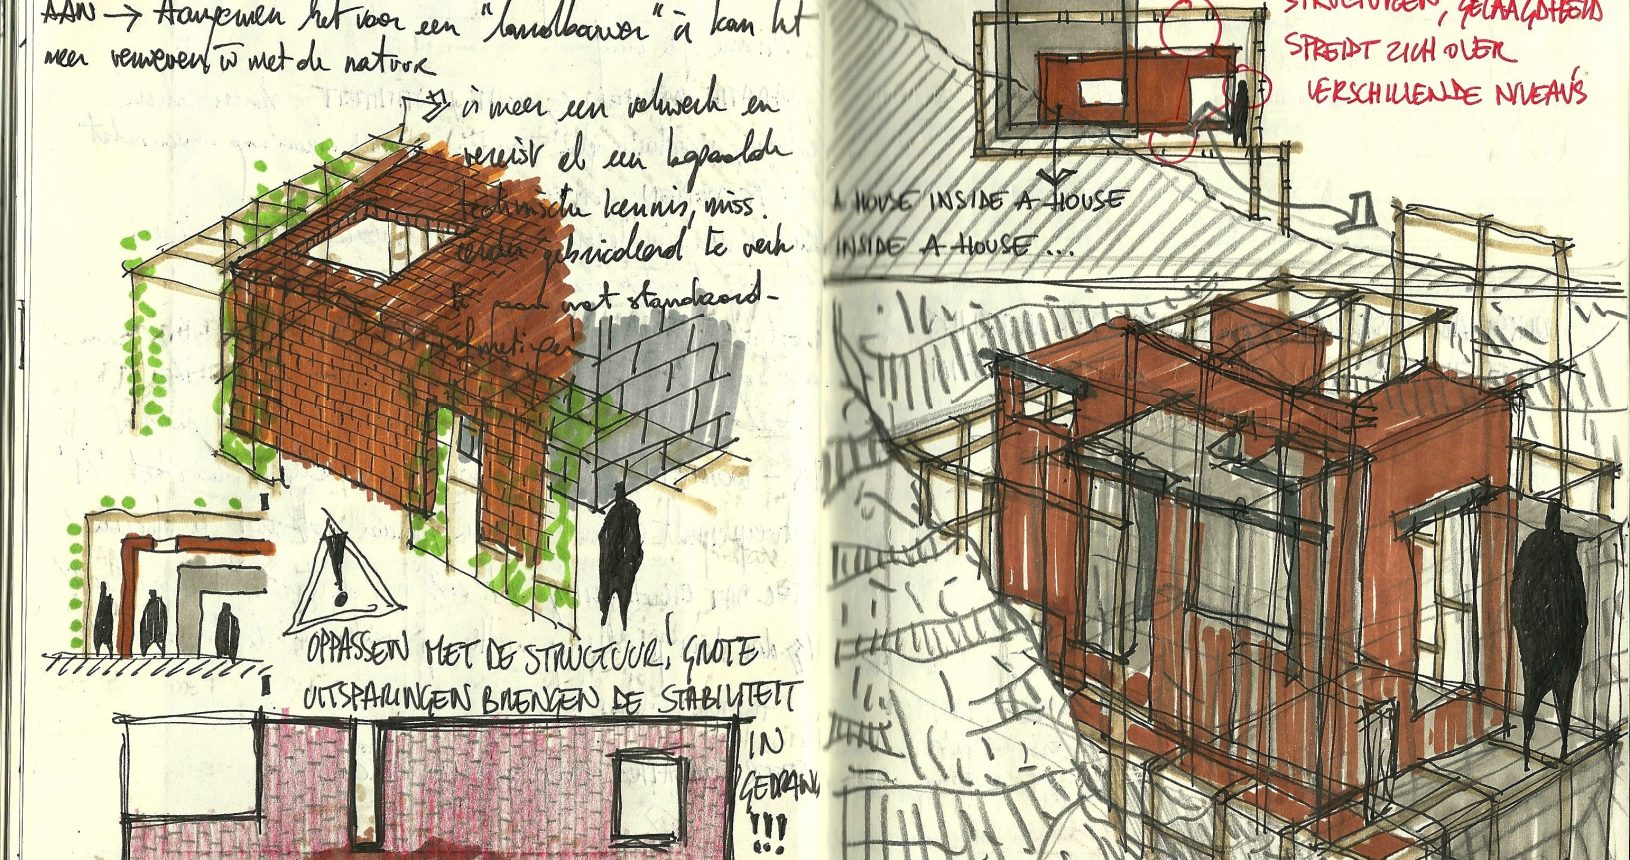 AAN → Aangenamen het voor een "landbouwer" is kan ht
meer verweven w met de natuur
→ is meer een vakwerk en
vereist al een bepaalde
technische kennis, miss.
gebricoleerd te werk
te gaan met standaard-
OPPASSEN MET DE STRUCTUUR! GROTE
UITSPARINGEN BRENGEN DE STABILITEIT
IN
GEDRANG
!!!
STRUCTUREN, GELAAGDHEID
SPREIDT ZICH OVER
VERSCHILLENDE NIVEAU'S
A HOUSE INSIDE A HOUSE
INSIDE A HOUSE...